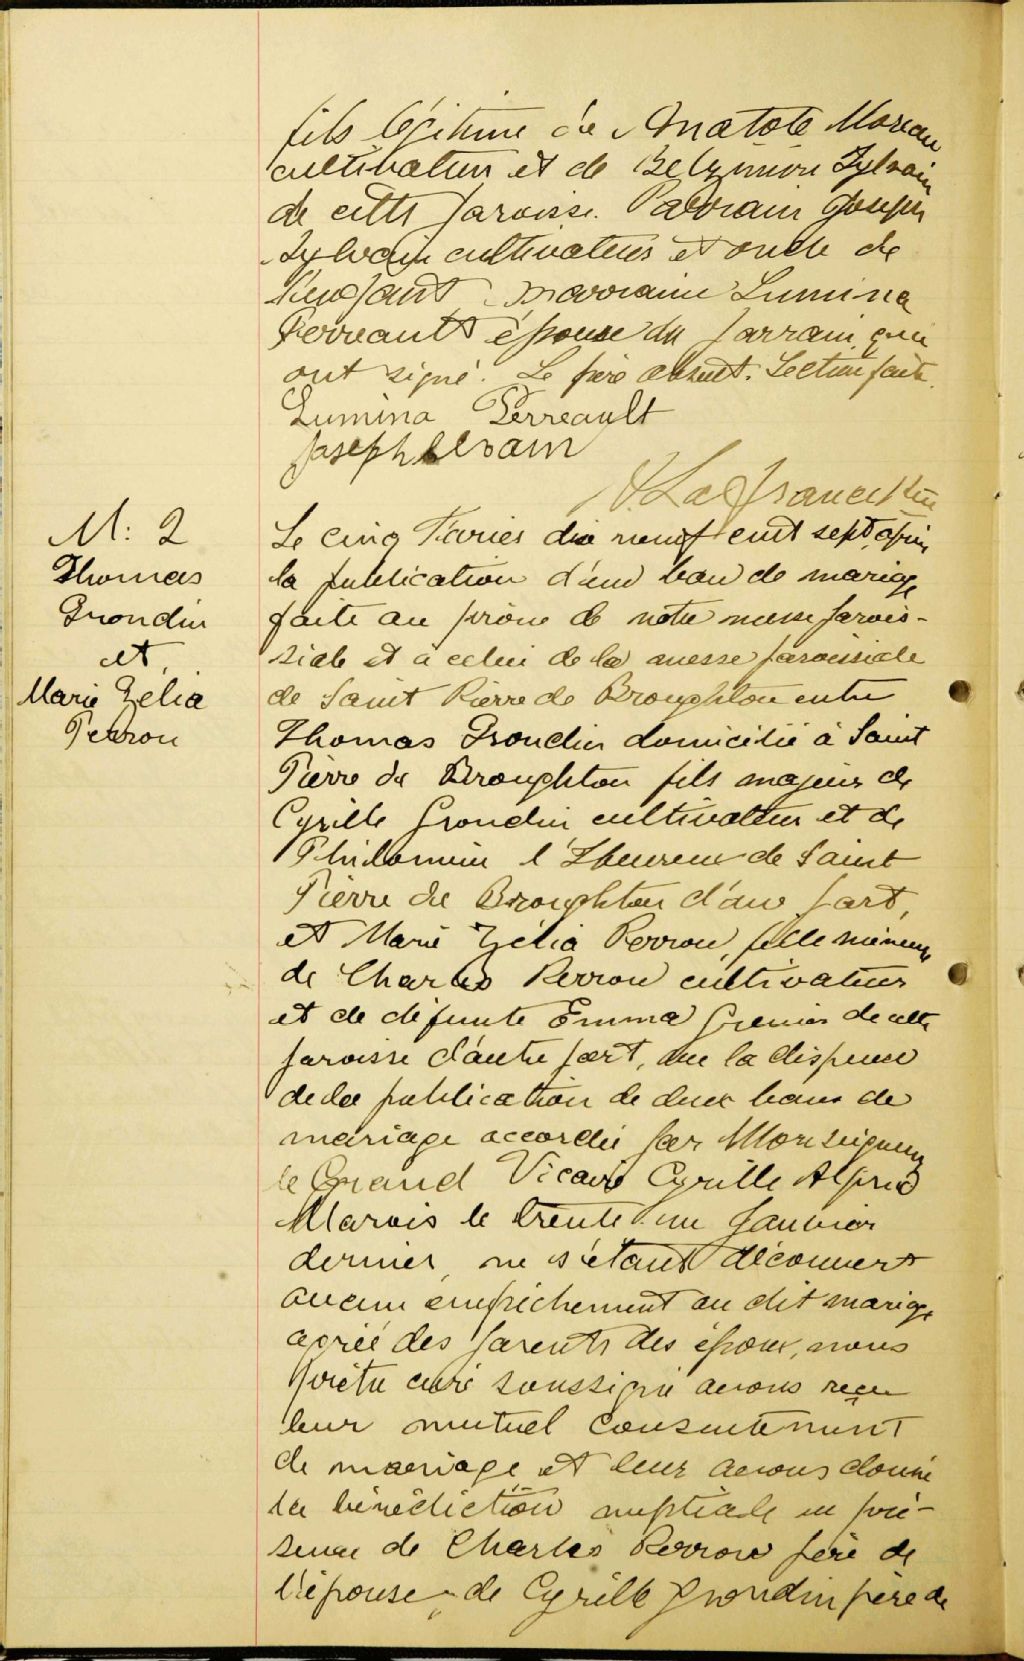 fils légitime de Anatole Moreau
cultivateur et de Belzimire Sylvain
de cette paroisse. Parrain Joseph
Sylvain cultivateur et oncle de
l'enfant marraine Lumina
Perreault épouse du parrain qui
ont signé. Le père absent. Lecture faite.
Lumina Perreault
Joseph Sylvain
Lafrance Ptre
M: 2
Thomas
Grondin
et
Marie Zélia
Perron
Le cinq Février dix neuf cent sept après
la publication d'un ban de mariage
faite au prône de notre messe parois-
siale et à celui de la messe paroissiale
de Saint Pierre de Broughton entre
Thomas Grondin domicilié à Saint
Pierre de Broughton fils majeur de
Cyrille Grondin cultivateur et de
Philomène l'Heureux de Saint
Pierre de Broughton d'une part,
et Marie Zélia Perron, fille mineure
de Charles Perron cultivateur
et de défunte Emma Grenier de cette
paroisse d'autre part, vu la dispense
de la publication de deux bans de
mariage accordée par Monseigneur
le Grand Vicaire Cyrille Alfred
Marois le trente un Janvier
dernier, ne s'étant découvert
aucun empêchement au dit mariage
agréé des parents des époux, nous
prêtre curé soussigné avons reçu
leur mutuel consentement
de mariage et leur avons donné
la bénédiction nuptiale en pré-
sence de Charles Perron père de
l'épouse, de Cyrille Grondin père de